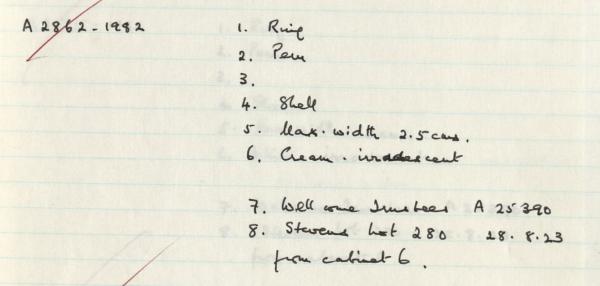 A 2862-1982 1. Ring
2. Peru
3.
4. Shell
5. Max. width 2.5 cms.
6. Cream. irradescent
7. Wellcome Trustees A 25390
8. Stevens Lot 280 28.8.23
from cabinet 6.